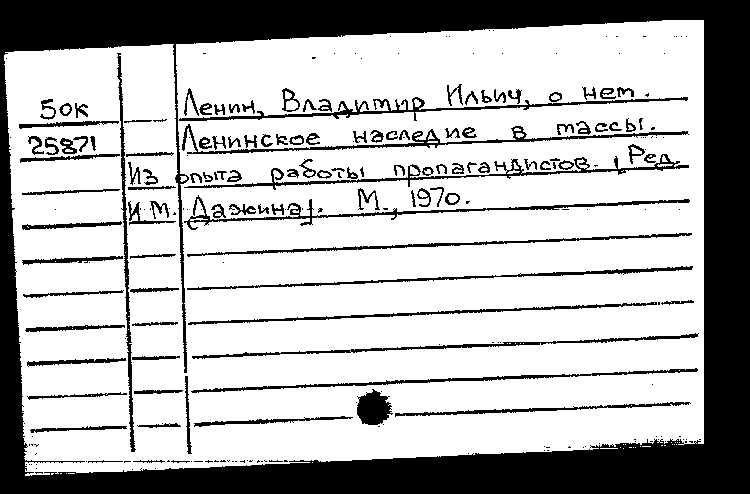 50к Ленин, Владимир Ильич, о нем.
25871 Ленинское наследие в массы.
Из опыта работы пропагандистов. [Ред.
И.М. Дажина]. М., 1970.